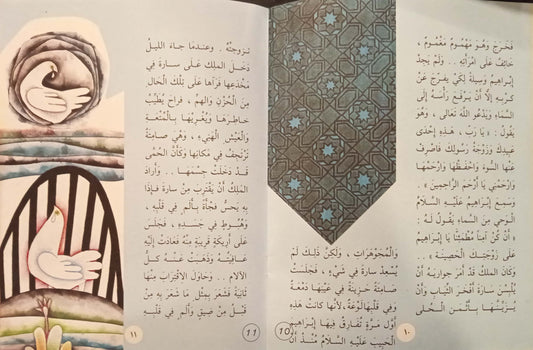 فَخَرَجَ وَهُوَ مَهْمُومٌ مَغْمُومٌ ،
خَائِفٌ عَلَى امْرَأَتِهِ . وَلَمْ يَجِدْ
إِبْرَاهِيمُ وَسِيلَةً لِكَيْ يَفْرُجَ عَنْ
كَرْبِهِ إِلَّا أَنْ يَرْفَعَ رَأْسَهُ إِلَى
السَّمَاءِ وَيَدْعُوَ اللَّهَ تَعَالَى ، وَهُوَ
يَقُولُ : « يَا رَبّ ، هَذِهِ إِحْدَى
عَبِيدِكَ وَزَوْجَةُ رَسُولِكَ فَاصْرِفْ
عَنْهَا السُّوءَ وَاحْفَظْهَا وَارْحَمْهَا
وَارْحَمْنِي يَا أَرْحَمَ الرَّاحِمِينَ » .
وَسَمِعَ إِبْرَاهِيمُ عَلَيْهِ السَّلَامُ
الْوَحْيَ مِنَ السَّمَاءِ يَقُولُ لَهُ :
« أَنْ كُنْ آمِنًا مُطْمَئِنًّا يَا إِبْرَاهِيمُ
عَلَى زَوْجَتِكَ الْحَصِينَةِ » .
وَكَانَ الْمَلِكُ قَدْ أَمَرَ جَوَارِيَهُ أَنْ
يُلْبِسْنَ سَارَةَ أَفْخَرَ الثِّيَابِ وَأَنْ
يُزَيِّنَّهَا بِأَثْمَنِ الْحُلَى
١٠
وَالْمُجَوْهَرَاتِ ، وَلَكِنَّ ذَلِكَ لَمْ
يُسْعِدْ سَارَةَ فِي شَيْءٍ ، فَجَلَسَتْ
صَامِتَةً حَزِينَةً فِي عَيْنِهَا دَمْعَةٌ
وَفِي قَلْبِهَا لَوْعَةٌ لِأَنَّهَا كَانَتْ هَذِهِ
أَوَّلَ مَرَّةٍ تُفَارِقُ فِيهَا إِبْرَاهِيمَ
الْحَبِيبَ عَلَيْهِ السَّلَامُ مُنْذُ أَنْ
10
تَزَوَّجَتْهُ . وَعِنْدَمَا جَاءَ اللَّيْلُ
دَخَلَ الْمَلِكُ عَلَى سَارَةَ فِي
مَخْدَعِهَا فَرَآهَا عَلَى تِلْكَ الْحَالِ
مِنَ الْحُزْنِ وَالْهَمِ ، فَرَاحَ يُطَيِّبُ
خَاطِرَهَا وَيُغْرِيهَا بِالْمُتْعَةِ
وَالْعَيْشِ الْهَنِيءِ ، وَهْيَ صَامِتَةٌ
تَرْتَجِفُ فِي مَكَانِهَا وَكَأَنَّ الْحُمَّى
قَدْ دَخَلَتْ جِسْمَهَا .. وَأَرَادَ
الْمَلِكُ أَنْ يَقْتَرِبَ مِنْ سَارَةَ فَإِذَا
بِهِ يَحِسُّ فَجْأَةً بِأَلَمٍ فِي قَلْبِهِ ،
وَهُبُوطٍ فِي جَسَدِهِ ، فَجَلَسَ
عَلَى أَرِيكَةٍ قَرِيبَةٍ مِنْهُ فَعَادَتْ إِلَيْهِ
عَافِيَتُهُ وَذَهَبَتْ عَنْهُ كُلُّ
الْآلَامِ .. وَحَاوَلَ الِاقْتِرَابَ مِنْهَا
ثَانِيَةً فَشَعَرَ بِمِثْلِ مَا شَعَرَ بِهِ مِنْ
قَبْلُ مِنْ ضِيقٍ وَأَلَمٍ فِي قَلْبِهِ
11
١١